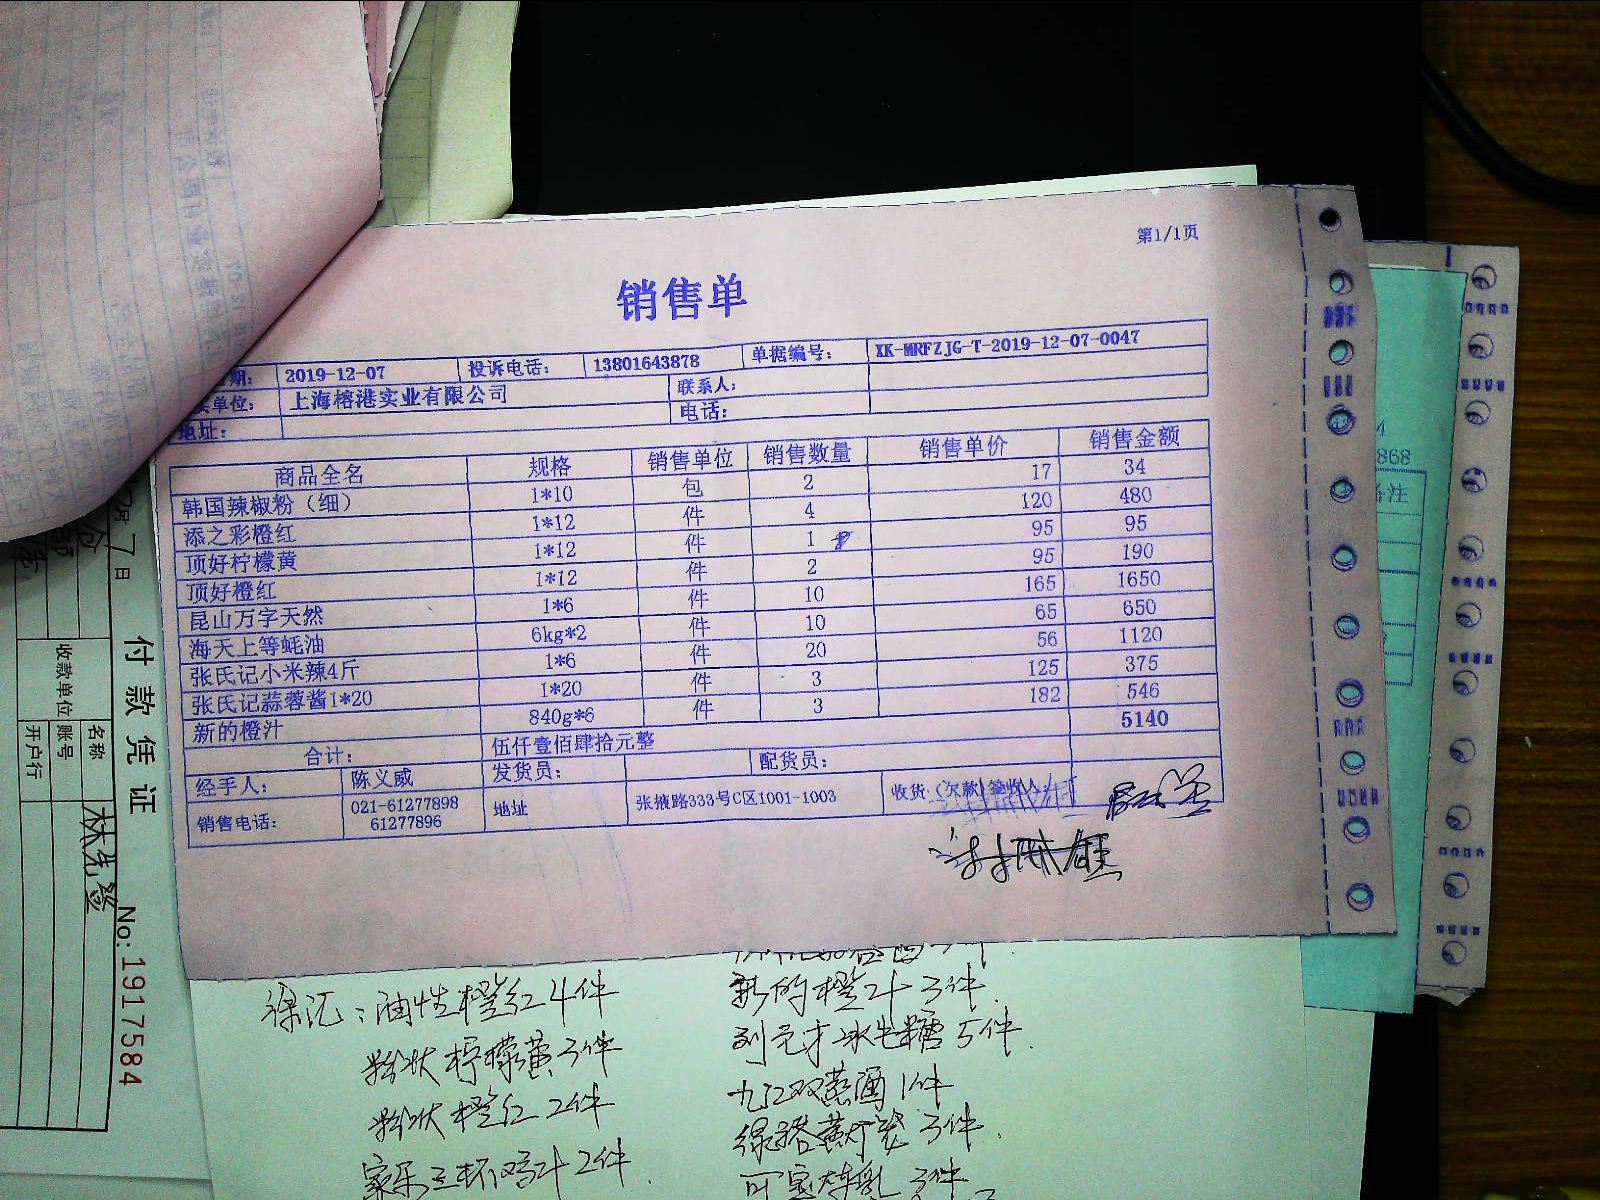 第1/1页
销售单
期: 2019-12-07 投诉电话: 13801643878 单据编号: XK-MRFZJG-T-2019-12-07-0047
单位: 上海榕港实业有限公司 联系人:
地址: 电话:
商品全名 规格 销售单位 销售数量 销售单价 销售金额
韩国辣椒粉（细） 1*10 包 2 17 34
添之彩橙红 1*12 件 4 120 480
顶好柠檬黄 1*12 件 1 95 95
顶好橙红 1*12 件 2 95 190
昆山万字天然 1*6 件 10 165 1650
海天上等蚝油 6kg*2 件 10 65 650
张氏记小米辣4斤 1*6 件 20 56 1120
张氏记蒜蓉酱1*20 1*20 件 3 125 375
新的橙汁 840g*6 件 3 182 546
合计: 伍仟壹佰肆拾元整 5140
经手人: 陈义威 发货员: 配货员:
销售电话: 021-61277898 61277896 地址 张掖路333号C区1001-1003 收货（欠款）签收人
徐汇：油性橙红4件
粉状柠檬黄3件
粉状橙红2件
家乐三杯鸡汁2件
新的橙汁3件.
冰片糖5件.
九江双蒸酒1件
绿搭黄灯笼3件.
可宝炼乳3件
7日
付款凭证
No: 1917584
收款单位
名称
账号
开户行
林先登
868
备注